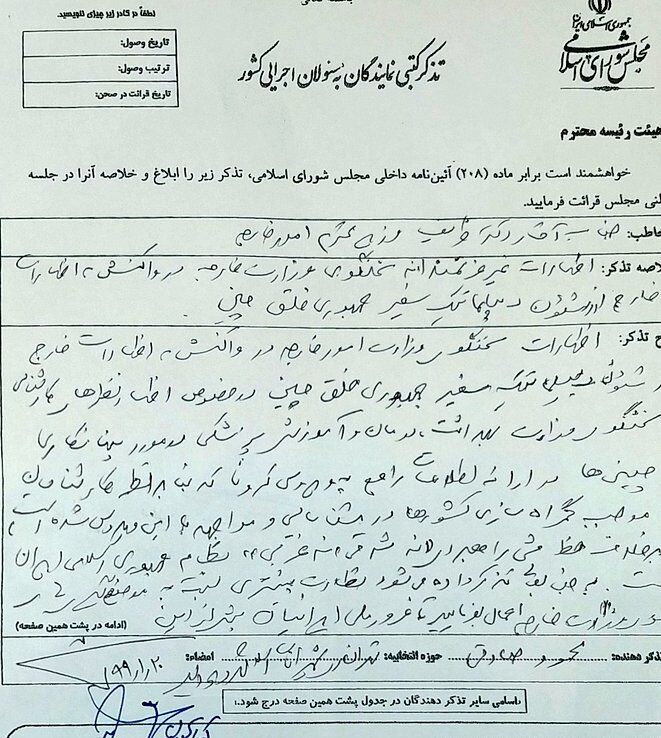 بسمه تعالی
لطفاً در کادر زیر چیزی ننویسید.
تاریخ وصول:
ترتیب وصول:
تاریخ قرائت در صحن:
جمهوری اسلامی ایران
مجلس شورای اسلامی
تذکر کتبی نمایندگان به مسئولان اجرایی کشور
هیئت رئیسه محترم
خواهشمند است برابر ماده (۲۰۸) آئین‌نامه داخلی مجلس شورای اسلامی، تذکر زیر را ابلاغ و خلاصه آنرا در جلسه
لنی مجلس قرائت فرمایید.
خاطب: جناب آقای دکتر ظریف وزیر محترم امور خارجه
لاصه تذکر: اظهارات غیرعزتمندانه سخنگوی وزارت خارجه در واکنش به اظهارات
خارج از شئون دیپلماتیک سفیر جمهوری خلق چین
ح تذکر: اظهارات سخنگوی وزارت امور خارجه در واکنش به اظهارات خارج
از شئون دیپلماتیک سفیر جمهوری خلق چین درخصوص اظهارنظرهای کارشناسی
سخنگوی وزارت بهداشت، درمان و آموزش پزشکی در مورد پنهانکاری
چینی‌ها در ارائه اطلاعات راجع به ویروس کرونا که بنا بر نظر کارشناسان
موجب گمراه سازی کشورها در شناسایی و مواجهه با این ویروس شده است
برخلاف خط مشی راهبردی نه شرقی نه غربی نظام جمهوری اسلامی ایران
است به جنابعالی تذکر داده می‌شود نظارت بیشتری نسبت به
وزارت خارجه اعمال بفرمایید تا غرور ملی ایرانیان بیش از این
(ادامه در پشت همین صفحه)
تذکر دهنده: محمود صادقی حوزه انتخابیه: تهران، ری، شمیرانات، اسلامشهر و پردیس امضاء: ۹۹/۱/۲۰
اسامی سایر تذکر دهندگان در جدول پشت همین صفحه درج شود.